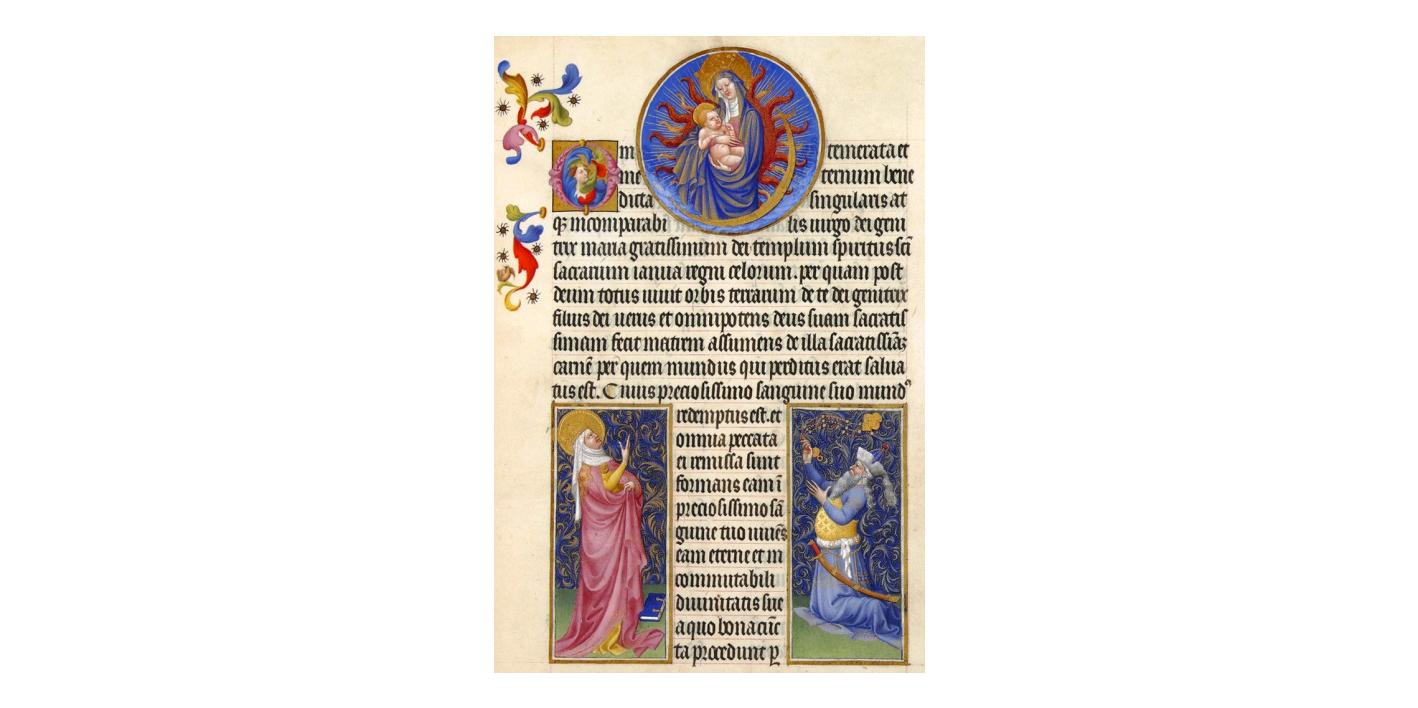 O m temerata et
me ternum bene
dicta singularis at
qꝫ incomparabi lis uirgo dei geni
trix maria gratissimum dei templum spiritus scī
sacrarium ianua regni celorum. per quam post
deum totus uiuit orbis terrarum de te dei genitrix
filius dei uerus et omnipotens deus suam sacratis
simam fecit matrem assumens de illa sacratissiāꝫ
carnē per quem mundus qui perditus erat salua
tus est. Cuius preciosissimo sanguine suo mundꝰ
redemptus est. et
omnia peccata
ei remissa sunt
formans eam ī
preciosissimo sā
guine tuo uiuēs
eam eterne et in
commutabili
diuinitatis sue
a quo bona cūc
ta procedunt ꝑ